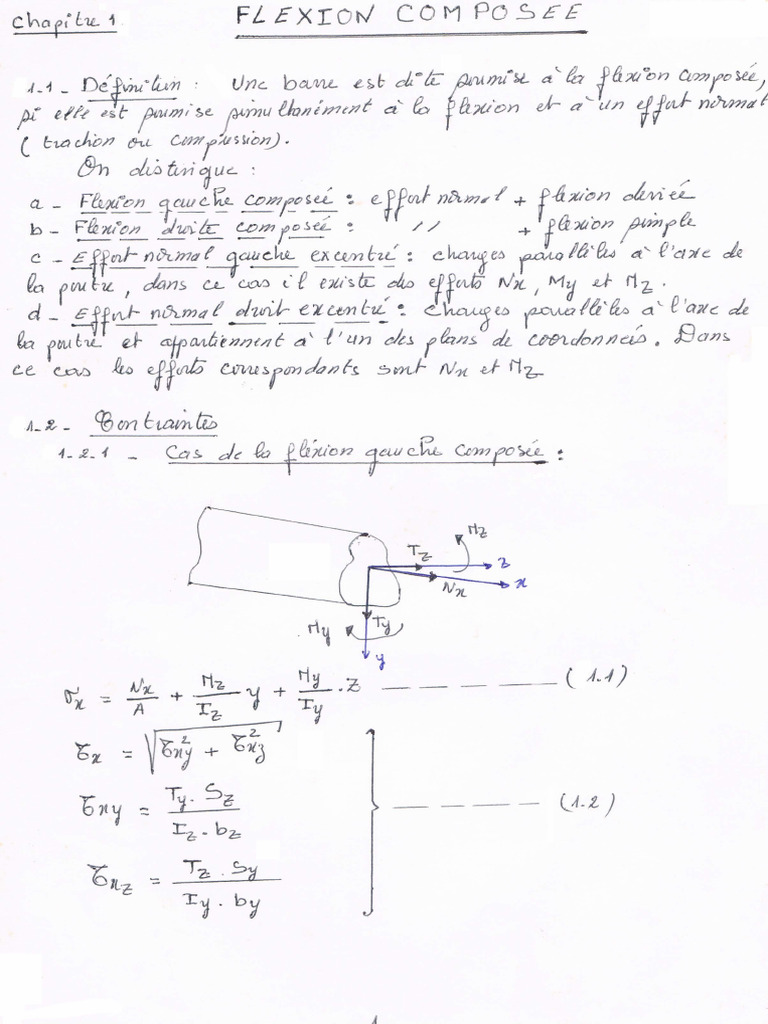 Chapitre 1.
FLEXION COMPOSEE
1-1- Définition : Une barre est dite soumise à la flexion composée,
si elle est soumise simultanément à la flexion et à un effort normal
( traction ou compression).
On distingue :
a - Flexion gauche composée : effort normal + flexion deviée
b - Flexion droite composée : // + flexion simple
c - Effort normal gauche excentré : charges parallèles à l'axe de
la poutre, dans ce cas il existe des efforts Nx, My et Mz.
d - Effort normal droit excentré : charges parallèles à l'axe de
la poutre et appartiennent à l'un des plans de coordonnées. Dans
ce cas les efforts correspondants sont Nx et Mz
1-2- Contraintes
1-2-1 - Cas de la fléxion gauche composée :
Mz
Tz
z
x
Nx
Ty
My
y
σx = Nx/A + Mz/Iz y + My/Iy . z — — — — — — (1.1)
τx = √(τxy² + τxz²)
τxy = Ty . Sz / Iz . bz — — — — — (1.2)
τxz = Tz . Sy / Iy . by
1